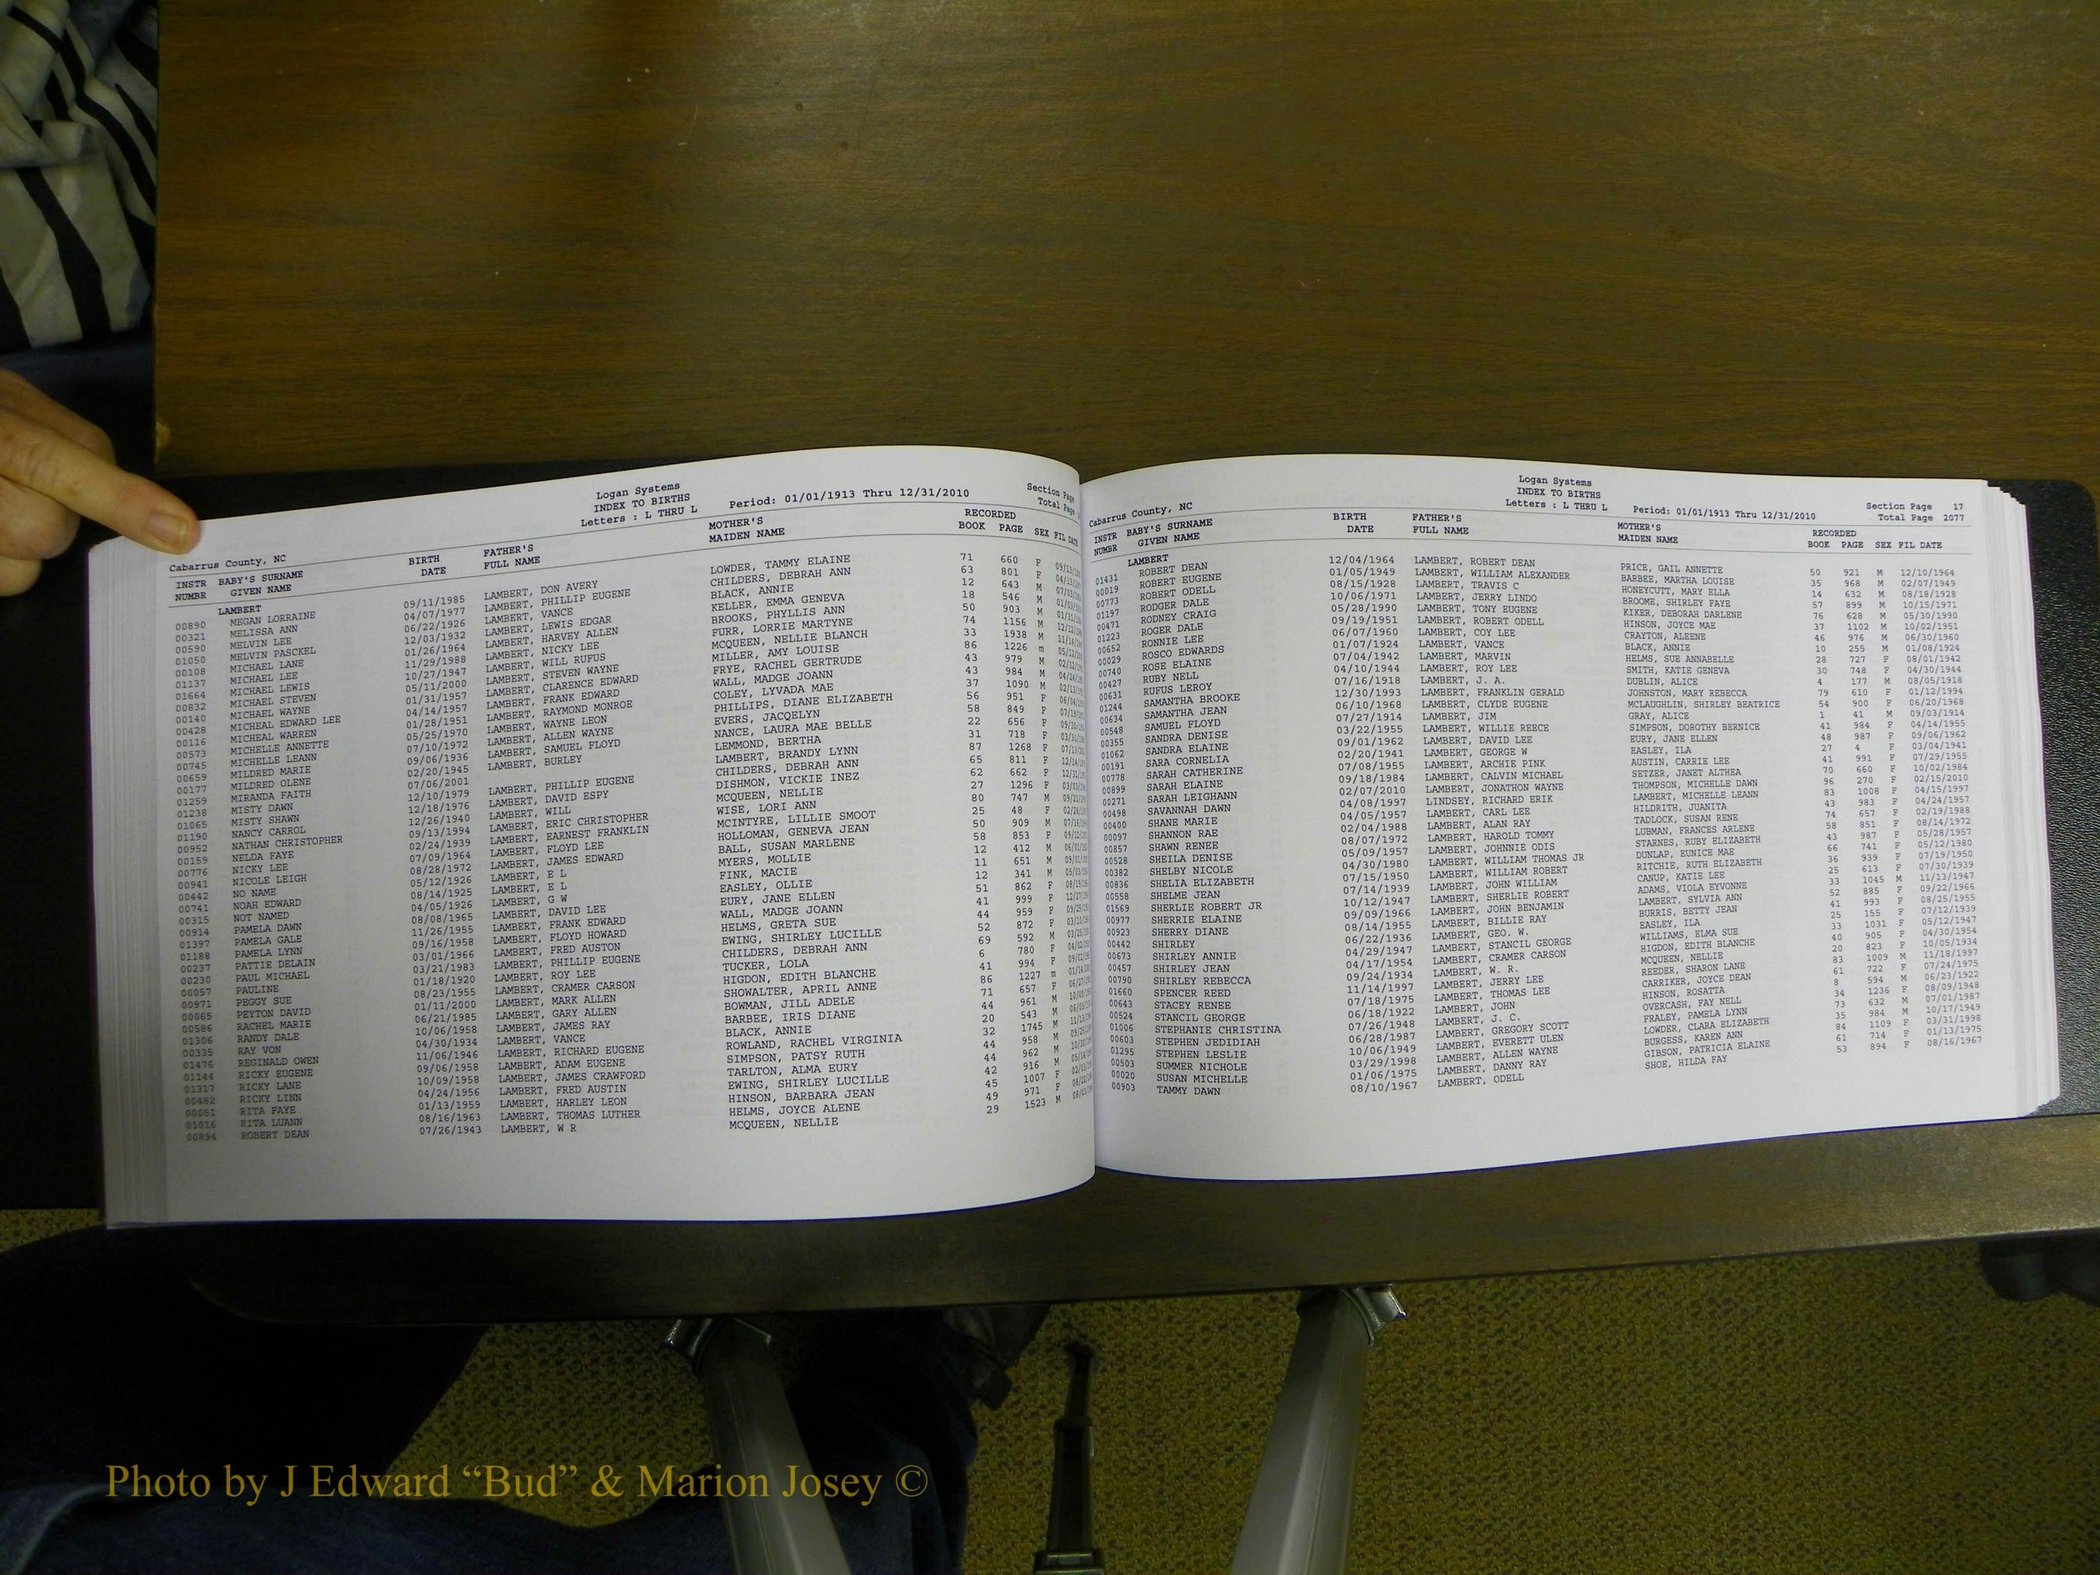 Logan Systems
INDEX TO BIRTHS
Letters : L THRU L
Period: 01/01/1913 Thru 12/31/2010
Section Page
Total Page
Cabarrus County, NC
INSTR BABY'S SURNAME BIRTH FATHER'S MOTHER'S RECORDED
NUMBR GIVEN NAME DATE FULL NAME MAIDEN NAME BOOK PAGE SEX FIL DATE
LAMBERT
00890 MEGAN LORRAINE 09/11/1985 LAMBERT, DON AVERY LOWDER, TAMMY ELAINE 71 660 F
00321 MELISSA ANN 04/07/1977 LAMBERT, PHILLIP EUGENE CHILDERS, DEBRAH ANN 63 801 F
00590 MELVIN LEE 06/22/1926 LAMBERT, VANCE BLACK, ANNIE 12 643 M
01050 MELVIN PASCKEL 12/03/1932 LAMBERT, LEWIS EDGAR KELLER, EMMA GENEVA 18 546 M
00108 MICHAEL LANE 01/26/1964 LAMBERT, HARVEY ALLEN BROOKS, PHYLLIS ANN 50 903 M
01137 MICHAEL LEE 11/29/1988 LAMBERT, NICKY LEE FURR, LORRIE MARTYNE 74 1156 M
01664 MICHAEL LEWIS 10/27/1947 LAMBERT, WILL RUFUS MCQUEEN, NELLIE BLANCH 33 1938 M
00832 MICHAEL STEVEN 05/11/2000 LAMBERT, STEVEN WAYNE MILLER, AMY LOUISE 86 1226 m
00140 MICHAEL WAYNE 01/31/1957 LAMBERT, CLARENCE EDWARD FRYE, RACHEL GERTRUDE 43 979 M
00428 MICHEAL EDWARD LEE 04/14/1957 LAMBERT, FRANK EDWARD WALL, MADGE JOANN 43 984 M
00116 MICHEAL WARREN 01/28/1951 LAMBERT, RAYMOND MONROE COLEY, LYVADA MAE 37 1090 M
00573 MICHELLE ANNETTE 05/25/1970 LAMBERT, WAYNE LEON PHILLIPS, DIANE ELIZABETH 56 951 F
00745 MICHELLE LEANN 07/10/1972 LAMBERT, ALLEN WAYNE EVERS, JACQELYN 58 849 F
00659 MILDRED MARIE 09/06/1936 LAMBERT, SAMUEL FLOYD NANCE, LAURA MAE BELLE 22 656 F
00177 MILDRED OLENE 02/20/1945 LAMBERT, BURLEY LEMMOND, BERTHA 31 718 F
01259 MIRANDA FAITH 07/06/2001 LAMBERT, BRANDY LYNN 87 1268 F
01238 MISTY DAWN 12/10/1979 LAMBERT, PHILLIP EUGENE CHILDERS, DEBRAH ANN 65 811 F
01065 MISTY SHAWN 12/18/1976 LAMBERT, DAVID ESPY DISHMON, VICKIE INEZ 62 662 F
01190 NANCY CARROL 12/26/1940 LAMBERT, WILL MCQUEEN, NELLIE 27 1296 F
00952 NATHAN CHRISTOPHER 09/13/1994 LAMBERT, ERIC CHRISTOPHER WISE, LORI ANN 80 747 M
00159 NELDA FAYE 02/24/1939 LAMBERT, EARNEST FRANKLIN MCINTYRE, LILLIE SMOOT 25 48 F
00776 NICKY LEE 07/09/1964 LAMBERT, FLOYD LEE HOLLOMAN, GENEVA JEAN 50 909 M
00941 NICOLE LEIGH 08/28/1972 LAMBERT, JAMES EDWARD BALL, SUSAN MARLENE 58 853 F
00442 NO NAME 05/12/1926 LAMBERT, E L MYERS, MOLLIE 12 412 M
00741 NOAH EDWARD 08/14/1925 LAMBERT, E L FINK, MACIE 11 651 M
00315 NOT NAMED 04/05/1926 LAMBERT, G W EASLEY, OLLIE 12 341 M
00914 PAMELA DAWN 08/08/1965 LAMBERT, DAVID LEE EURY, JANE ELLEN 51 862 F
01397 PAMELA GALE 11/26/1955 LAMBERT, FRANK EDWARD WALL, MADGE JOANN 41 999 F
01188 PAMELA LYNN 09/16/1958 LAMBERT, FLOYD HOWARD HELMS, GRETA SUE 44 959 F
00237 PATTIE DELAIN 03/01/1966 LAMBERT, FRED AUSTON EWING, SHIRLEY LUCILLE 52 872 F
00230 PAUL MICHAEL 03/21/1983 LAMBERT, PHILLIP EUGENE CHILDERS, DEBRAH ANN 69 592 M
00057 PAULINE 01/18/1920 LAMBERT, ROY LEE TUCKER, LOLA 6 780 F
00971 PEGGY SUE 08/23/1955 LAMBERT, CRAMER CARSON HIGDON, EDITH BLANCHE 41 994 F
00065 PEYTON DAVID 01/11/2000 LAMBERT, MARK ALLEN SHOWALTER, APRIL ANNE 86 1227 m
00586 RACHEL MARIE 06/21/1985 LAMBERT, GARY ALLEN BOWMAN, JILL ADELE 71 657 F
01306 RANDY DALE 10/06/1958 LAMBERT, JAMES RAY BARBEE, IRIS DIANE 44 961 M
00335 RAY VON 04/30/1934 LAMBERT, VANCE BLACK, ANNIE 20 543 M
01476 REGINALD OWEN 11/06/1946 LAMBERT, RICHARD EUGENE ROWLAND, RACHEL VIRGINIA 32 1745 M
01144 RICKY EUGENE 09/06/1958 LAMBERT, ADAM EUGENE SIMPSON, PATSY RUTH 44 958 M
01317 RICKY LANE 10/09/1958 LAMBERT, JAMES CRAWFORD TARLTON, ALMA EURY 44 962 M
00482 RICKY LINN 04/24/1956 LAMBERT, FRED AUSTIN EWING, SHIRLEY LUCILLE 42 916 M
00051 RITA FAYE 01/13/1959 LAMBERT, HARLEY LEON HINSON, BARBARA JEAN 45 1007 F
01016 RITA LUANN 08/16/1963 LAMBERT, THOMAS LUTHER HELMS, JOYCE ALENE 49 971 F
00894 ROBERT DEAN 07/26/1943 LAMBERT, W R MCQUEEN, NELLIE 29 1523 M
Logan Systems
INDEX TO BIRTHS
Letters : L THRU L
Period: 01/01/1913 Thru 12/31/2010
Section Page 17
Total Page 2077
Cabarrus County, NC
INSTR BABY'S SURNAME BIRTH FATHER'S MOTHER'S RECORDED
NUMBR GIVEN NAME DATE FULL NAME MAIDEN NAME BOOK PAGE SEX FIL DATE
LAMBERT
01431 ROBERT DEAN 12/04/1964 LAMBERT, ROBERT DEAN PRICE, GAIL ANNETTE 50 921 M 12/10/1964
00019 ROBERT EUGENE 01/05/1949 LAMBERT, WILLIAM ALEXANDER BARBEE, MARTHA LOUISE 35 968 M 02/07/1949
00773 ROBERT ODELL 08/15/1928 LAMBERT, TRAVIS C HONEYCUTT, MARY ELLA 14 632 M 08/18/1928
01197 RODGER DALE 10/06/1971 LAMBERT, JERRY LINDO BROOME, SHIRLEY FAYE 57 899 M 10/15/1971
00471 RODNEY CRAIG 05/28/1990 LAMBERT, TONY EUGENE KIKER, DEBORAH DARLENE 76 628 M 05/30/1990
01223 ROGER DALE 09/19/1951 LAMBERT, ROBERT ODELL HINSON, JOYCE MAE 37 1102 M 10/02/1951
00652 RONNIE LEE 06/07/1960 LAMBERT, COY LEE CRAYTON, ALEENE 46 976 M 06/30/1960
00029 ROSCO EDWARDS 01/07/1924 LAMBERT, VANCE BLACK, ANNIE 10 255 M 01/08/1924
00740 ROSE ELAINE 07/04/1942 LAMBERT, MARVIN HELMS, SUE ANNABELLE 28 727 F 08/01/1942
00427 RUBY NELL 04/10/1944 LAMBERT, ROY LEE SMITH, KATIE GENEVA 30 748 F 04/30/1944
00631 RUFUS LEROY 07/16/1918 LAMBERT, J. A. DUBLIN, ALICE 4 177 M 08/05/1918
01244 SAMANTHA BROOKE 12/30/1993 LAMBERT, FRANKLIN GERALD JOHNSTON, MARY REBECCA 79 610 F 01/12/1994
00634 SAMANTHA JEAN 06/10/1968 LAMBERT, CLYDE EUGENE MCLAUGHLIN, SHIRLEY BEATRICE 54 900 F 06/20/1968
00548 SAMUEL FLOYD 07/27/1914 LAMBERT, JIM GRAY, ALICE 1 41 M 09/03/1914
00355 SANDRA DENISE 03/22/1955 LAMBERT, WILLIE REECE SIMPSON, DOROTHY BERNICE 41 984 F 04/14/1955
01062 SANDRA ELAINE 09/01/1962 LAMBERT, DAVID LEE EURY, JANE ELLEN 48 987 F 09/06/1962
00191 SARA CORNELIA 02/20/1941 LAMBERT, GEORGE W EASLEY, ILA 27 4 F 03/04/1941
00778 SARAH CATHERINE 07/08/1955 LAMBERT, ARCHIE PINK AUSTIN, CARRIE LEE 41 991 F 07/29/1955
00899 SARAH ELAINE 09/18/1984 LAMBERT, CALVIN MICHAEL SETZER, JANET ALTHEA 70 660 F 10/02/1984
00271 SARAH LEIGHANN 02/07/2010 LAMBERT, JONATHON WAYNE THOMPSON, MICHELLE DAWN 96 270 F 02/15/2010
00498 SAVANNAH DAWN 04/08/1997 LINDSEY, RICHARD ERIK LAMBERT, MICHELLE LEANN 83 1008 F 04/15/1997
00400 SHANE MARIE 04/05/1957 LAMBERT, CARL LEE HILDRITH, JUANITA 43 983 F 04/24/1957
00097 SHANNON RAE 02/04/1988 LAMBERT, ALAN RAY TADLOCK, SUSAN RENE 74 657 F 02/19/1988
00857 SHAWN RENEE 08/07/1972 LAMBERT, HAROLD TOMMY LUBMAN, FRANCES ARLENE 58 851 F 08/14/1972
00528 SHEILA DENISE 05/09/1957 LAMBERT, JOHNNIE ODIS STARNES, RUBY ELIZABETH 43 987 F 05/28/1957
00382 SHELBY NICOLE 04/30/1980 LAMBERT, WILLIAM THOMAS JR DUNLAP, EUNICE MAE 66 741 F 05/12/1980
00836 SHELIA ELIZABETH 07/15/1950 LAMBERT, WILLIAM ROBERT RITCHIE, RUTH ELIZABETH 36 939 F 07/19/1950
00558 SHELME JEAN 07/14/1939 LAMBERT, JOHN WILLIAM CANUP, KATIE LEE 25 613 F 07/30/1939
01569 SHERLIE ROBERT JR 10/12/1947 LAMBERT, SHERLIE ROBERT ADAMS, VIOLA EYVONNE 33 1045 M 11/13/1947
00977 SHERRIE ELAINE 09/09/1966 LAMBERT, JOHN BENJAMIN LAMBERT, SYLVIA ANN 52 885 F 09/22/1966
00923 SHERRY DIANE 08/14/1955 LAMBERT, BILLIE RAY BURRIS, BETTY JEAN 41 993 F 08/25/1955
00442 SHIRLEY 06/22/1936 LAMBERT, GEO. W. EASLEY, ILA 25 155 F 07/12/1939
00673 SHIRLEY ANNIE 04/29/1947 LAMBERT, STANCIL GEORGE WILLIAMS, ELMA SUE 33 1031 F 05/12/1947
00457 SHIRLEY JEAN 04/17/1954 LAMBERT, CRAMER CARSON HIGDON, EDITH BLANCHE 40 905 F 04/30/1954
00790 SHIRLEY REBECCA 09/24/1934 LAMBERT, W. R. MCQUEEN, NELLIE 20 823 F 10/05/1934
01660 SPENCER REED 11/14/1997 LAMBERT, JERRY LEE REEDER, SHARON LANE 83 1009 M 11/18/1997
00643 STACEY RENEE 07/18/1975 LAMBERT, THOMAS LEE CARRIKER, JOYCE DEAN 61 722 F 07/24/1975
00524 STANCIL GEORGE 06/18/1922 LAMBERT, JOHN HINSON, ROSATTA 8 594 M 06/23/1922
01006 STEPHANIE CHRISTINA 07/26/1948 LAMBERT, J. C. OVERCASH, FAY NELL 34 1236 F 08/09/1948
00603 STEPHEN JEDIDIAH 06/28/1987 LAMBERT, GREGORY SCOTT FRALEY, PAMELA LYNN 73 632 M 07/01/1987
01295 STEPHEN LESLIE 10/06/1949 LAMBERT, EVERETT ULEN LOWDER, CLARA ELIZABETH 35 984 M 10/17/1949
00503 SUMMER NICHOLE 03/29/1998 LAMBERT, ALLEN WAYNE BURGESS, KAREN ANN 84 1109 F 03/31/1998
00020 SUSAN MICHELLE 01/06/1975 LAMBERT, DANNY RAY GIBSON, PATRICIA ELAINE 61 714 F 01/13/1975
00903 TAMMY DAWN 08/10/1967 LAMBERT, ODELL SHOE, HILDA FAY 53 894 F 08/16/1967
Photo by J Edward “Bud” & Marion Josey ©